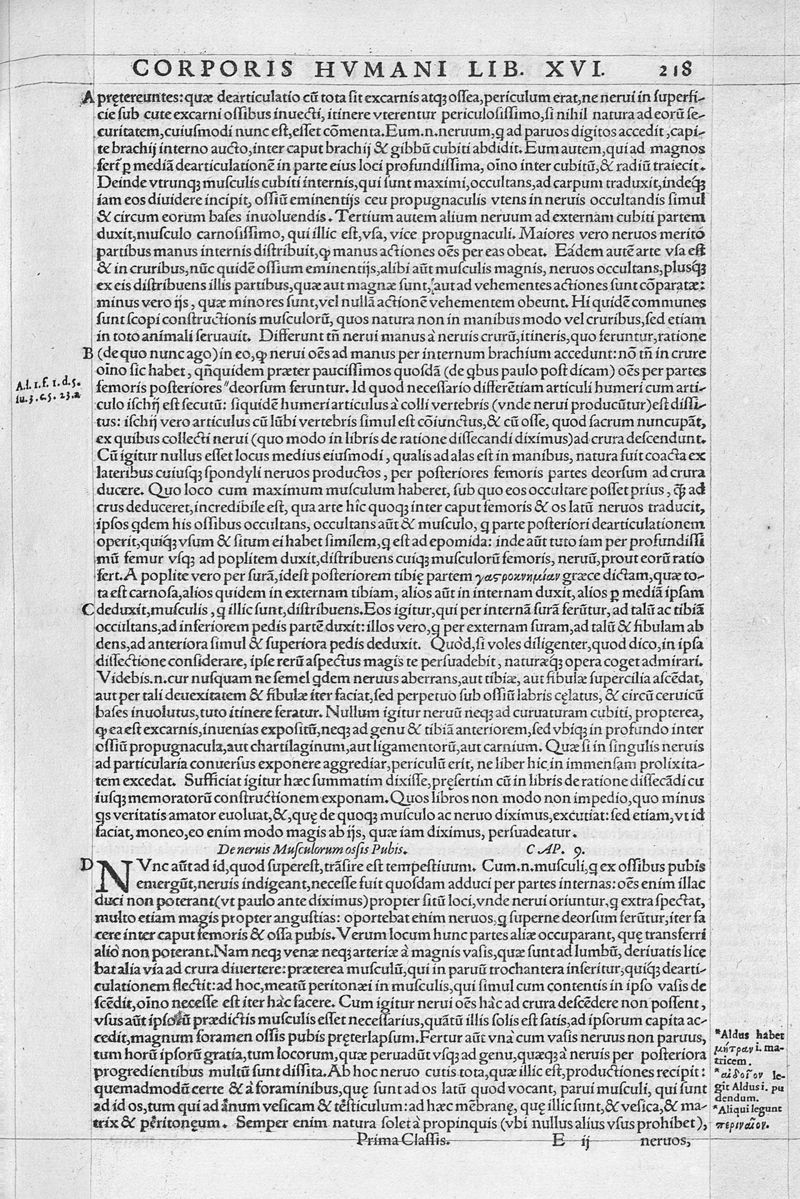 CORPORIS HVMANI LIB. XVI. 218
A prętereuntes: quæ dearticulatio cũ tota sit excarnis atq; ossea, periculum erat, ne nerui in superfi-
cie sub cute excarni ossibus inuecti, itinere vterentur periculosissimo, si nihil natura ad eorũ se-
curitatem, cuiusmodi nunc est, esset cõmenta. Eum.n.neruum, q ad paruos digitos accedit, capi-
te brachij interno aucto, inter caput brachij & gibbũ cubiti abdidit. Eum autem, qui ad magnos
fert p mediã dearticulationẽ in parte eius loci profundissima, oĩno inter cubitũ, & radiũ traiecit.
Deinde vtrunq; musculis cubiti internis, qui sunt maximi, occultans, ad carpum traduxit, indeq;
iam eos diuidere incipit, ossiũ eminentijs ceu propugnaculis vtens in neruis occultandis simul
& circum eorum bases inuoluendis. Tertium autem alium neruum ad externam cubiti partem
duxit, musculo carnosissimo, qui illic est, vsa, vice propugnaculi. Maiores vero neruos merito
partibus manus internis distribuit, q manus actiones oẽs per eas obeat. Eádem autẽ arte vsa est
& in cruribus, nũc quidẽ ossium eminentijs, alibi aũt musculis magnis, neruos occultans, plusq;
ex eis distribuens illis partibus, quæ aut magnæ sunt, aut ad vehementes actiones sunt cõparatæ:
minus vero ijs, quæ minores sunt, vel nullã actionẽ vehementem obeunt. Hi quidẽ communes
sunt scopi constructionis musculorũ, quos natura non in manibus modo vel cruribus, sed etiam
in toto animali seruauit. Differunt tñ nerui manus à neruis crurũ, itineris, quo feruntur, ratione
B (de quo nunc ago) in eo, q nerui oẽs ad manus per internum brachium accedunt: nõ tñ in crure
oĩno sic habet, qñquidem præter paucissimos quosdã (de qbus paulo post dicam) oẽs per partes
A.l.1.f.1.d.5.
iu.3.c.5.23.a
femoris posteriores "deorsum feruntur. Id quod necessario differẽtiam articuli humeri cum arti-
culo ischij est secutũ: siquidẽ humeri articulus à colli vertebris (vnde nerui producũtur) est dissi-
tus: ischij vero articulus cũ lũbi vertebris simul est cõiunctus, & cũ osse, quod sacrum nuncupãt,
ex quibus collecti nerui (quo modo in libris de ratione dissecandi diximus) ad crura descendunt.
Cũ igitur nullus esset locus medius eiusmodi, qualis ad alas est in manibus, natura fuit coacta ex
lateribus cuiusq; spondyli neruos productos, per posteriores femoris partes deorsum ad crura
ducere. Quo loco cum maximum musculum haberet, sub quo eos occultare posset prius, q̃ ad
crus deduceret, incredibile est, qua arte hîc quoq; inter caput femoris & os latũ neruos traducit,
ipsos qdem his ossibus occultans, occultans aũt & musculo, q parte posteriori dearticulationem
operit, quiq; vsum & situm ei habet similem, q est ad epomida: inde aũt tuto iam per profundissi
mũ femur vsq; ad poplitem duxit, distribuens cuiq; musculorũ femoris, neruũ, prout eorũ ratio
fert. A poplite vero per surã, idest posteriorem tibię partem γαστροκνημίαν græce dictam, quæ to-
ta est carnosa, alios quidem in externam tibiam, alios aũt in internam duxit, alios p mediã ipsam
C deduxit, musculis, q illic sunt, distribuens. Eos igitur, qui per internã surã ferũtur, ad talũ ac tibiã
occultans, ad inferiorem pedis partẽ duxit: illos vero, q per externam suram, ad talũ & fibulam ab
dens, ad anteriora simul & superiora pedis deduxit. Quòd, si voles diligenter, quod dico, in ipsa
dissectione considerare, ipse rerũ aspectus magis te persuadebit, naturæq; opera coget admirari.
Videbis.n.cur nusquam ne semel qdem neruus aberrans, aut tibiæ, aut fibulæ supercilia ascẽdat,
aut per tali deuexitatem & fibulæ iter faciat, sed perpetuo sub ossiũ labris cęlatus, & circũ ceruicũ
bases inuolutus, tuto itinere feratur. Nullum igitur neruũ neq; ad curuaturam cubiti, propterea,
q ea est excarnis, inuenias expositũ, neq; ad genu & tibiã anteriorem, sed vbiq; in profundo inter
ossiũ propugnacula, aut chartilaginum, aut ligamentorũ, aut carnium. Quæ si in singulis neruis
ad particularia conuersus exponere aggrediar, periculũ erit, ne liber hic in immensam prolixita-
tem excedat. Sufficiat igitur hæc summatim dixisse, pręsertim cũ in libris de ratione dissecãdi cu
iusq; memoratorũ constructionem exponam. Quos libros non modo non impedio, quo minus
qs veritatis amator euoluat, &, quę de quoq; musculo ac neruo diximus, excutiat: sed etiam, vt id
faciat, moneo, eo enim modo magis ab ijs, quæ iam diximus, persuadeatur.
De neruis Musculorum ossis Pubis. CAP. 9.
D NVnc aũt ad id, quod superest, trãsire est tempestiuum. Cum.n.musculi, q ex ossibus pubis
emergũt, neruis indigeant, necesse fuit quosdam adduci per partes internas: oẽs enim illac
duci non poterant (vt paulo ante diximus) propter sitũ loci, vnde nerui oriuntur, q extra spectat,
multo etiam magis propter angustias: oportebat enim neruos, q superne deorsum ferũtur, iter fa
cere inter caput femoris & ossa pubis. Verum locum hunc partes aliæ occuparant, quę transferri
aliò non poterant. Nam neq; venæ neq; arteriæ à magnis vasis, quæ sunt ad lumbũ, deriuatis lice
bat alia via ad crura diuertere: præterea musculũ, qui in paruũ trochantera inseritur, quiq; dearti-
culationem flectit: ad hoc, meatũ peritonæi in musculis, qui simul cum contentis in ipso vasis de
scẽdit, oĩno necesse est iter hàc facere. Cum igitur nerui oẽs hàc ad crura descẽdere non possent,
vsus aũt ipsorũ prædictis musculis esset necessarius, quãtũ illis solis est satis, ad ipsorum capita ac-
cedit, magnum foramen ossis pubis pręterlapsum. Fertur aũt vnà cum vasis neruus non paruus,
tum horũ ipsorũ gratia, tum locorum, quæ peruadũt vsq; ad genu, quæq; à neruis per posteriora
progredientibus multũ sunt dissita. Ab hoc neruo cutis tota, quæ illic est, productiones recipit:
quemadmodũ certe & à foraminibus, quę sunt ad os latũ quod vocant, parui musculi, qui sunt
ad id os, tum qui ad anum vesicam & testiculum: ad hæc mẽbranę, quę illic sunt, & vesica, & ma-
trix & peritonęum. Semper enim natura solet à propinquis (vbi nullus alius vsus prohibet),
*Aldus habet
μήτραν i. ma-
tricem.
*αἰδοῖον le-
git Aldus i. pu
dendum.
*Aliqui legunt
περιναῖον.
Prima Classis. E ij neruos,